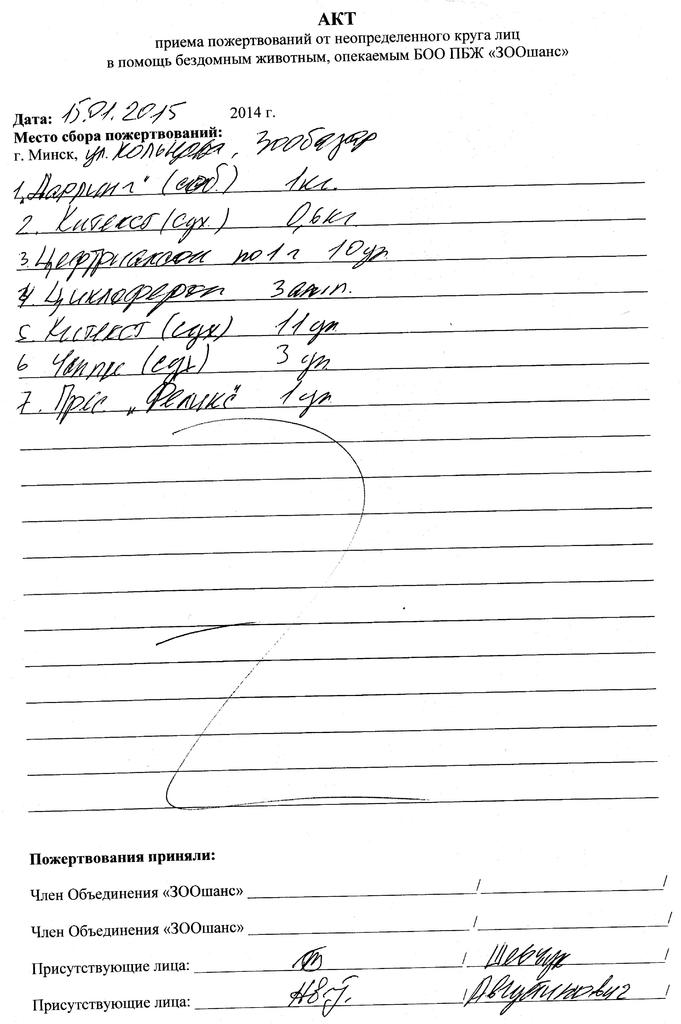 АКТ
приема пожертвований от неопределенного круга лиц
в помощь бездомным животным, опекаемым БОО ПБЖ «ЗООшанс»
Дата: 15.01.2015 2014 г.
Место сбора пожертвований:
г. Минск, ул. Кольцова, Зообазар
1. "Дарлинг" (соб) 1 кг.
2. Китекст (сух.) 0,6 кг
3. Цефтриаксон по 1 г 10 уп
4 Циклоферон 3 амп.
5. Китекст (сух) 11 уп
6 Чаппи (сух) 3 уп.
7. Прес. "Феликс" 1 уп
Пожертвования приняли:
Член Объединения «ЗООшанс» / /
Член Объединения «ЗООшанс» / /
Присутствующие лица: / Шевчук /
Присутствующие лица: / Августинович /